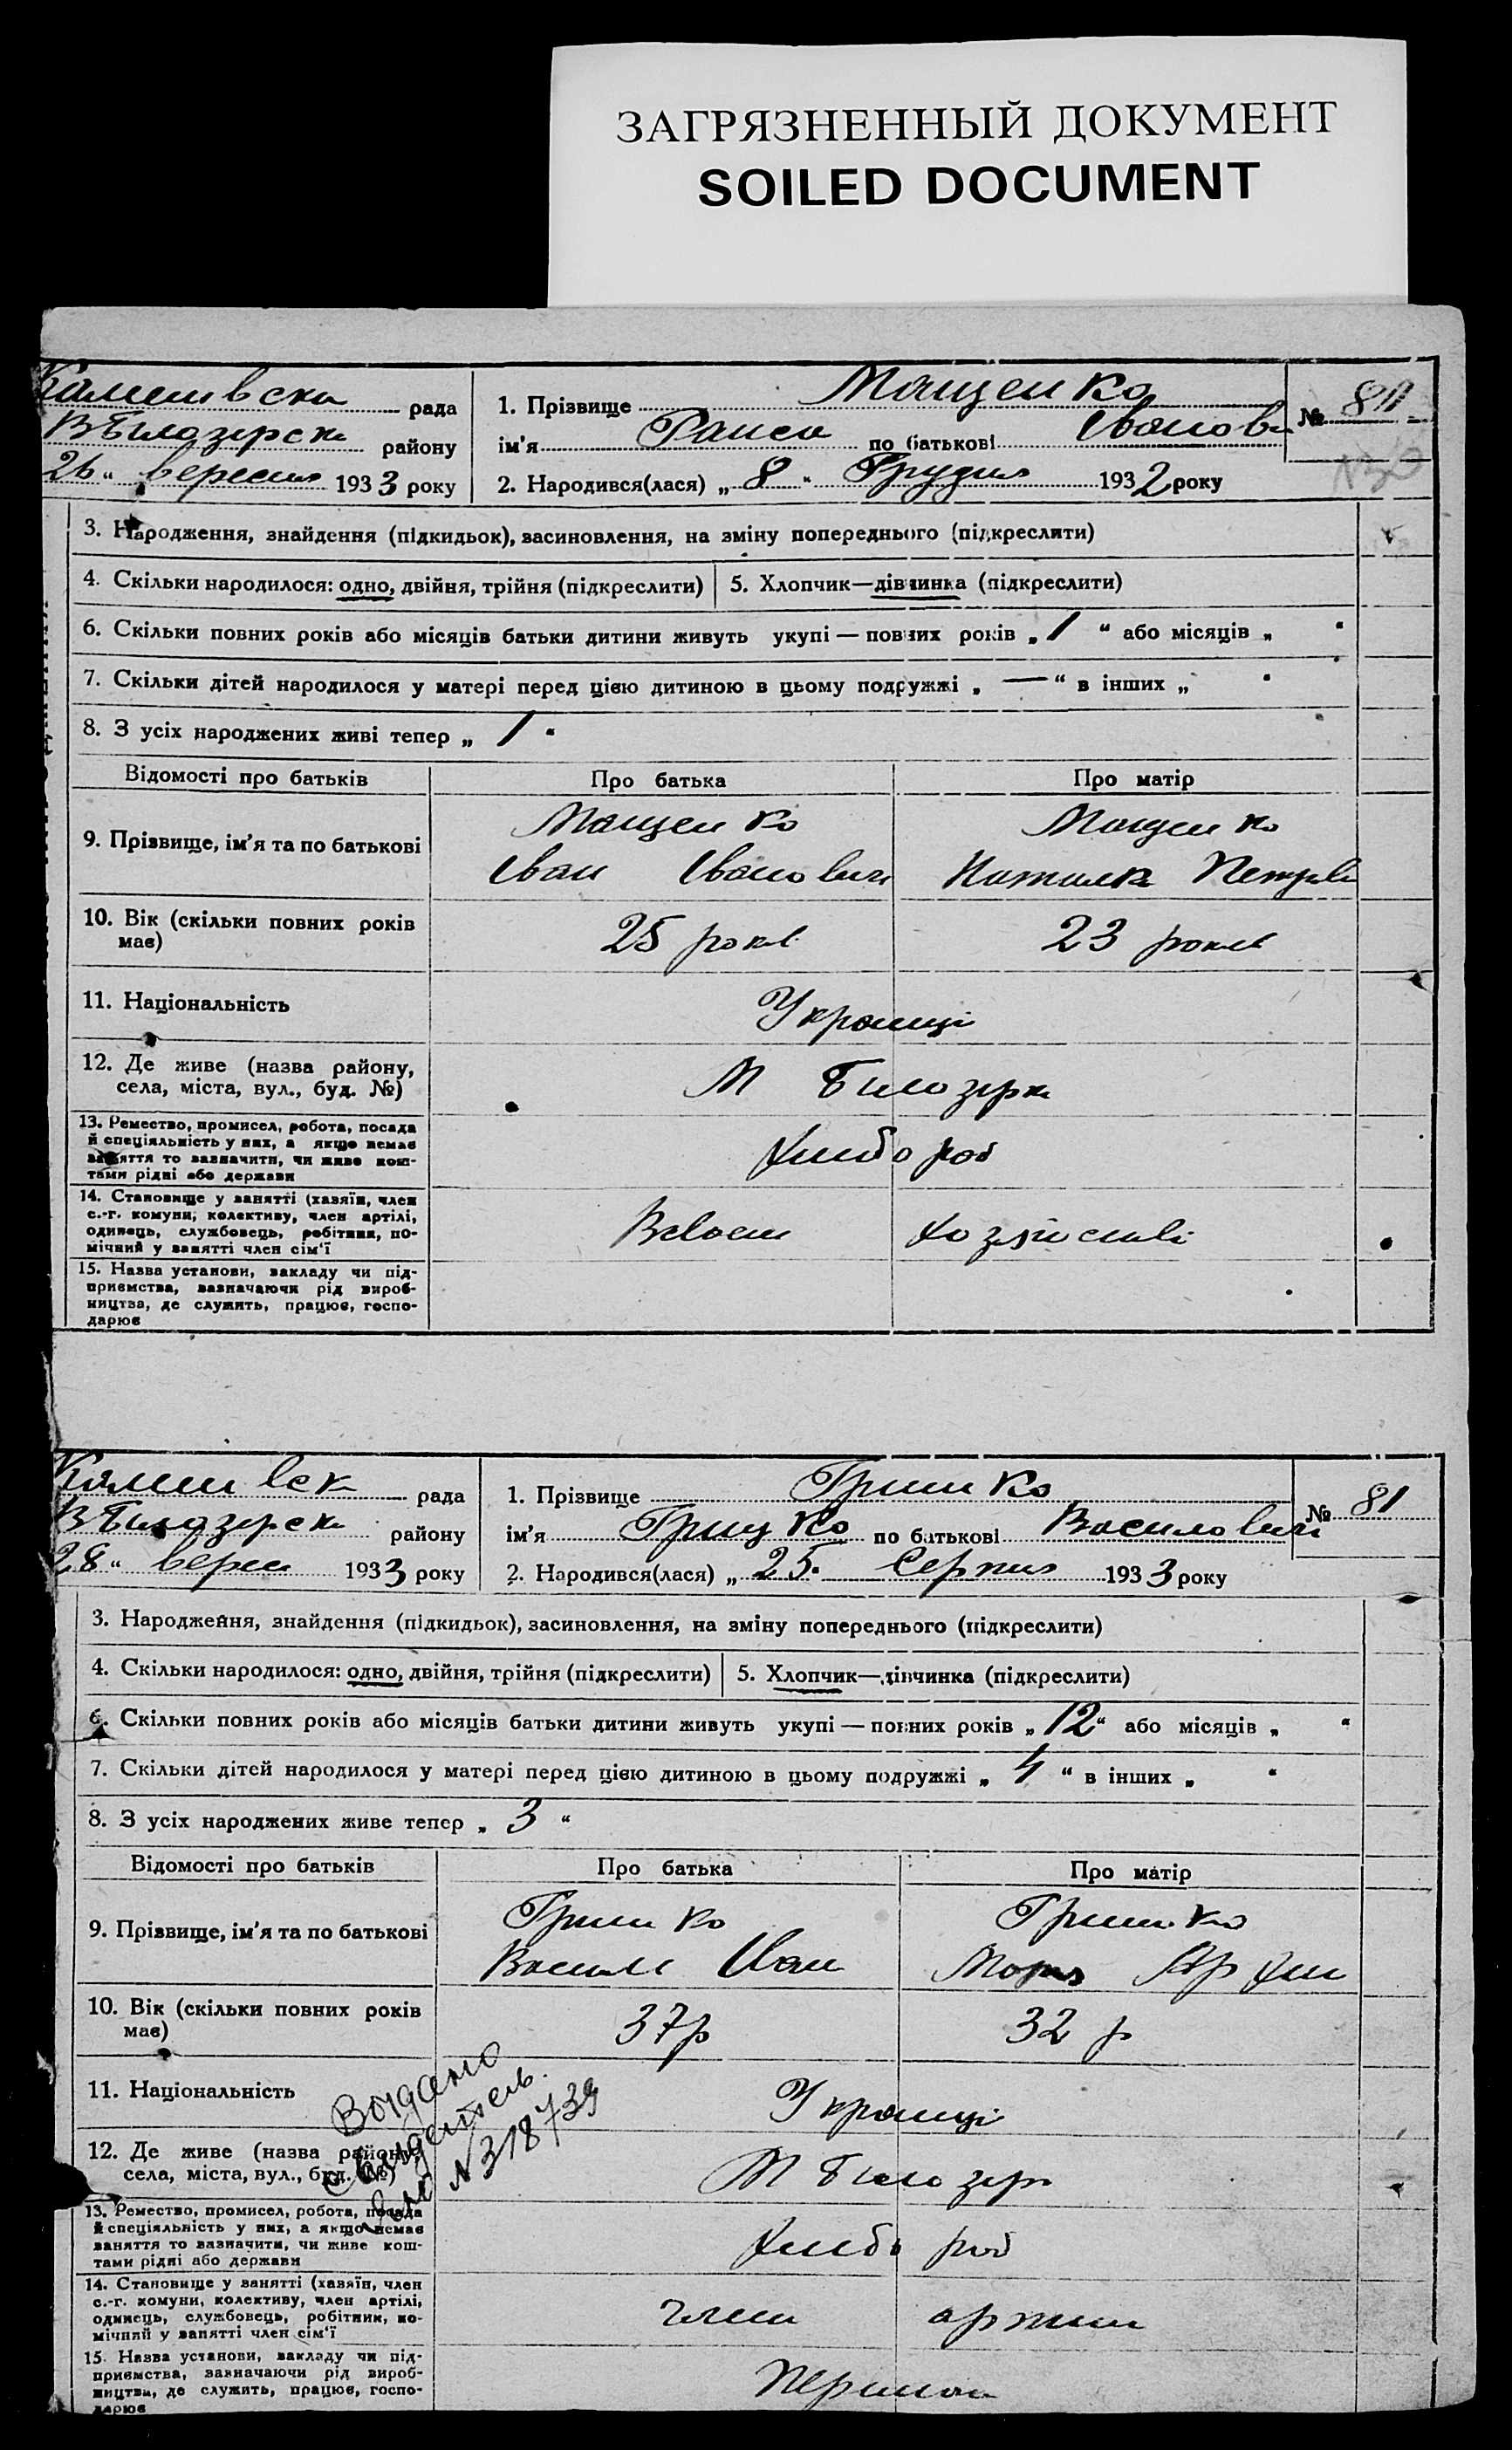 ЗАГРЯЗНЕННЫЙ ДОКУМЕНТ
SOILED DOCUMENT
рада
В Білозерськ району
26 " вересня 1933 року
1. Прізвище Мащенко
ім'я Раиса по батькові Іванов
2. Народився(лася) „ 8 " Грудня 1932 року
№ 80
3. Народження, знайдення (підкидьок), васиновлення, на зміну попереднього (підкреслити)
4. Скільки народилося: одно, двійня, трійня (підкреслити) 5. Хлопчик—дівчинка (підкреслити)
6. Скільки повних років або місяців батьки дитини живуть укупі — повних років „ 1 “ або місяців „ “
7. Скільки дітей народилося у матері перед цією дитиною в цьому подружжі „ — “ в інших „ “
8. З усіх народжених живі тепер „ 1 “
Відомості про батьків Про батька Про матір
9. Прізвище, ім'я та по батькові
Мащенко Мащенко
Іван Іванович Наталка Петрів
10. Вік (скільки повних років
має)
25 років 23 років
11. Національність Українці
12. Де живе (назва району,
села, міста, вул., буд. №)
М Білозірк
13. Ремество, промисел, робота, посада
й спеціяльність у них, а якщо немає
заняття то зазначити, чи живе кош-
тами рідні або держави
Хлібороб
14. Становище у занятті (хазяїн, член
с.-г. комуни, колективу, член артілі,
одинець, службовець, робітник, по-
мічний у занятті член сім'ї
15. Назва установи, закладу чи під-
приємства, зазначаючи рід вироб-
ництва, де служить, працює, госпо-
дарює
рада
В Білозерськ району
28 " верес 1933 року
1. Прізвище Гришко
ім'я Грицко по батькові Василович
2. Народився(лася) „ 25. Серпня 1933 року
№ 81
3. Народження, знайдення (підкидьок), засиновлення, на зміну попереднього (підкреслити)
4. Скільки народилося: одно, двійня, трійня (підкреслити) 5. Хлопчик—дівчинка (підкреслити)
6. Скільки повних років або місяців батьки дитини живуть укупі — повних років „ 12 “ або місяців „ “
7. Скільки дітей народилося у матері перед цією дитиною в цьому подружжі „ 4 “ в інших „ “
8. З усіх народжених живе тепер „ 3 “
Відомості про батьків Про батька Про матір
9. Прізвище, ім'я та по батькові
Гришко Гришко
Василь Іван
10. Вік (скільки повних років
має)
37р 32 р
11. Національність Українці
Выдано
свидетель.
N 318739
12. Де живе (назва району,
села, міста, вул., буд. №)
М Білозір
13. Ремество, промисел, робота, посада
й спеціяльність у них, а якщо немає
заняття то зазначити, чи живе кош-
тами рідні або держави
Хлібороб
14. Становище у занятті (хазяїн, член
с.-г. комуни, колективу, член артілі,
одинець, службовець, робітник, по-
мічний у занятті член сім'ї
член артили
15. Назва установи, закладу чи під-
приємства, зазначаючи рід вироб-
ництва, де служить, працює, госпо-
дарює